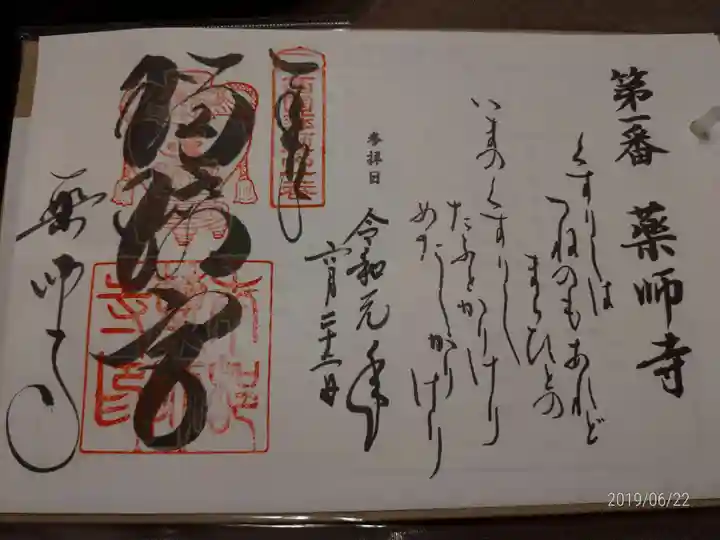 第一番 薬師寺
くすりしは
つねのもあれど
まらひとの
いまのくすりし
たふとかりけり
めだしかりけり
参拝日 令和元年
六月二十二日
瑠璃宮
薬師寺
2019/06/22